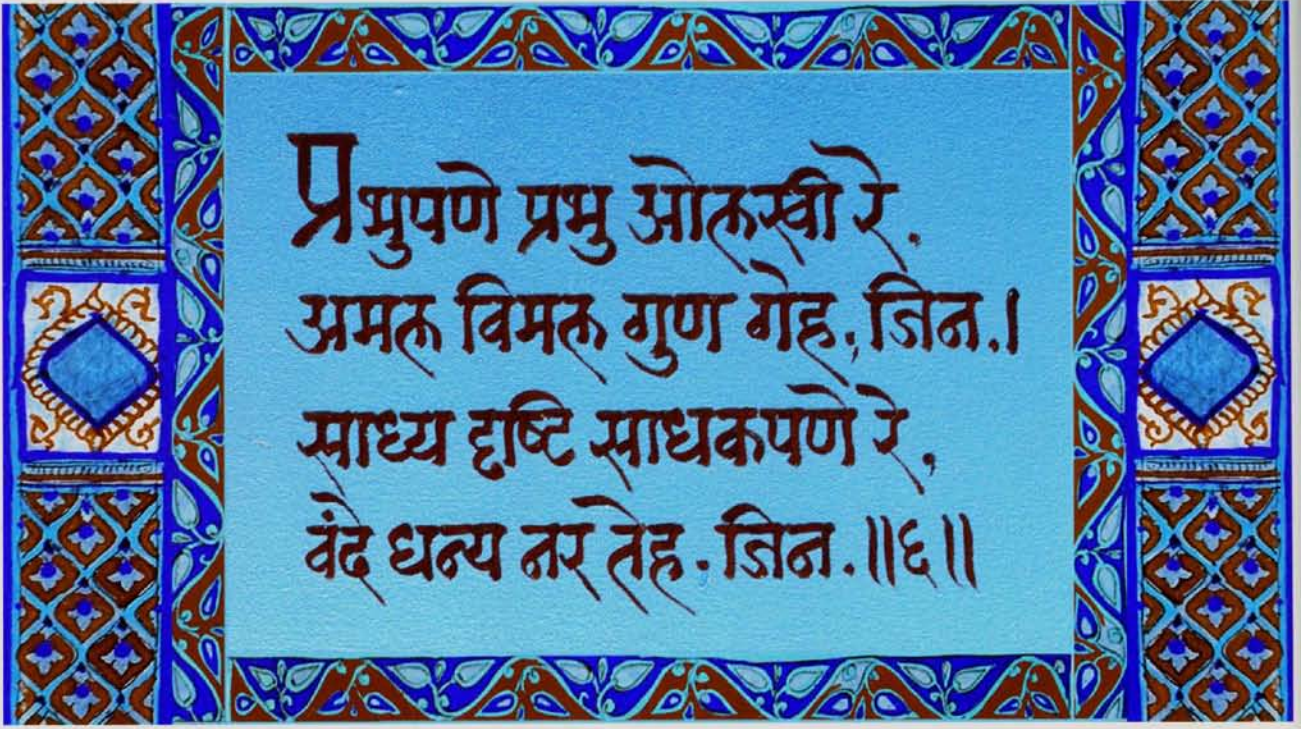 प्रभुपणे प्रभु ओलखी रे,
अमल विमल गुण गेह, जिन.।
साध्य दृष्टि साधकपणे रे,
वंदे धन्य नर तेह. जिन.॥६॥